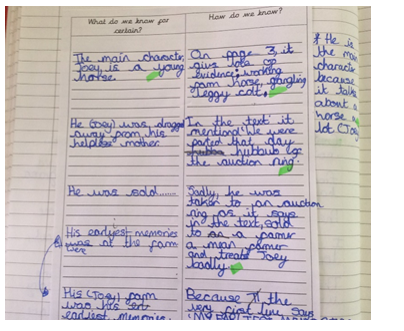 What do we know for
certain?
How do we know?
The main character,
Joey, is a young
horse.
On page 3, it
give lots of
evidence: working
farm horse, gangling
leggy colt.
He (Joey) was dragged
away from his
helpless mother.
In the text it
mentiond 'We were
parted that day
hubbub of
the auction ring.
He was sold........
Sadly, he was
taken to an auction
ring as it says
in the text, sold
to a farmer
a mean farmer
and treats Joey
badly.
His earliest memories
was at the farm
were
His (Joey) farm
was his
earliest memories.
Because the
very first line says
He is
the main
character
because
it talks
about a
horse a
lot (Joey